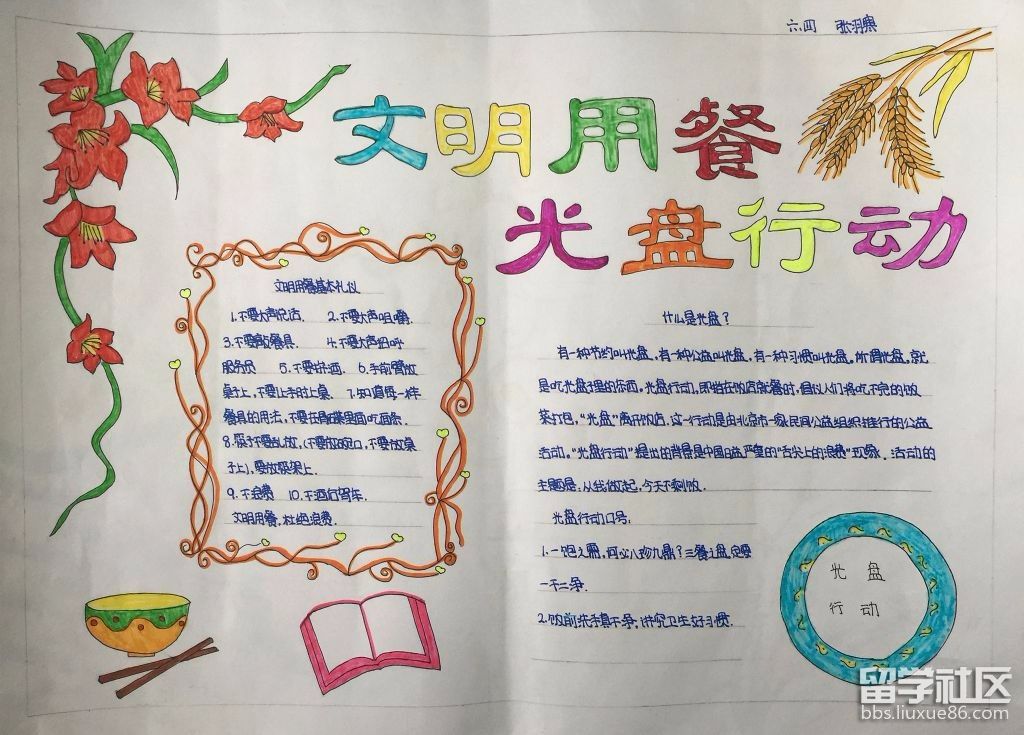 六.四 张羽
文明用餐
光盘行动
文明用餐基本礼仪
1.不要大声说话. 2.不要大声咀嚼.
3.不要敲餐具. 4.不要大声招呼
服务员 5.不要拼酒. 6.手前臂放
桌子上,不要上手肘上桌. 7.知道每一样
餐具的用法,不要在骨碟里面吃面条.
8.筷子不要乱放,(不要放碗口,不要放桌
子上),要放筷架上.
9.不浪费 10.不酒后驾车.
文明用餐,杜绝浪费.
什么是光盘?
有一种节约叫光盘,有一种公益叫光盘,有一种习惯叫光盘。所谓光盘,就
是吃光盘子里的东西。光盘行动,即指在饭店就餐时,倡议人们将吃不完的饭
菜打包,“光盘”离开饭店.这一行动是由北京市一家民间公益组织推行的公益
活动。“光盘行动”提出的背景是中国日益严重的“舌尖上的浪费”现象.活动的
主题是:从我做起,今天不剩饭.
光盘行动口号:
1.一饱之需,何必八珍九鼎?三餐之盘,定要
一干二净.
2.饭前洗手真干净,讲究卫生好习惯.
光盘
行动
留学社区
bbs.liuxue86.com